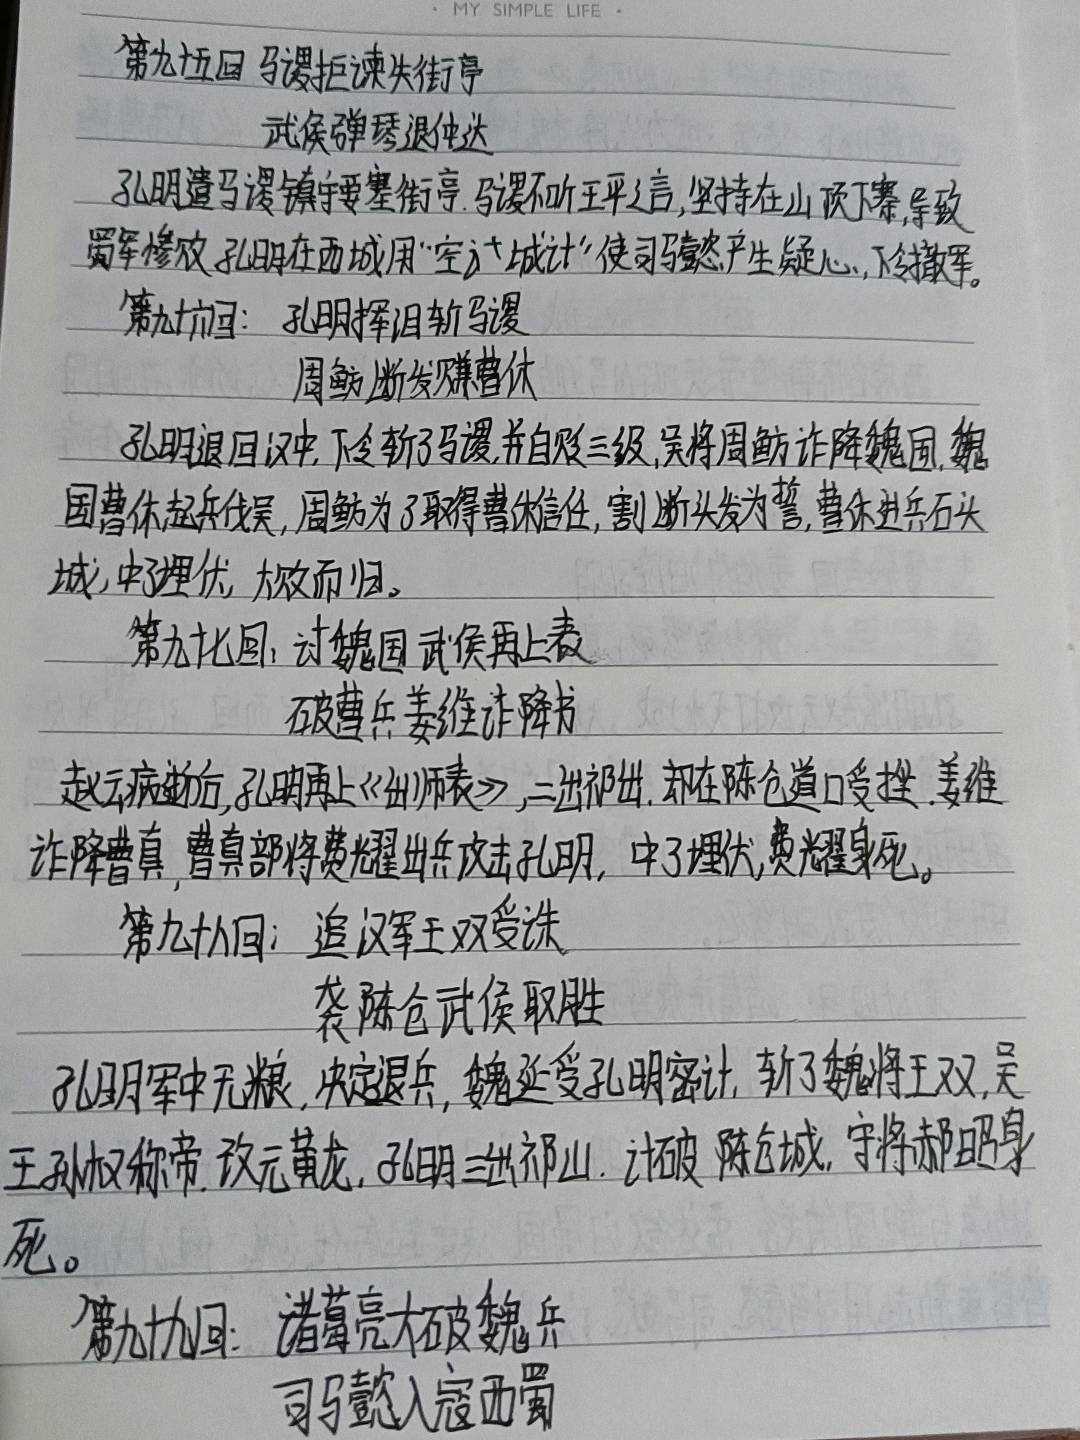 · MY SIMPLE LIFE ·
第九十五回 马谡拒谏失街亭
武侯弹琴退仲达
孔明遣马谡镇守要塞街亭.马谡不听王平之言,坚持在山顶下寨,导致
蜀军惨败.孔明在西城用“空城计”使司马懿产生疑心,下令撤军。
第九十六回: 孔明挥泪斩马谡
周鲂断发赚曹休
孔明退回汉中,下令斩了马谡,并自贬三级,吴将周鲂诈降魏国,魏
国曹休起兵伐吴,周鲂为了取得曹休信任,割断头发为誓,曹休进兵石头
城,中了埋伏,大败而归。
第九十七回:讨魏国武侯再上表
破曹兵姜维诈降书
赵云病逝后,孔明再上《出师表》,二出祁出.却在陈仓道口受挫.姜维
诈降曹真,曹真部将费耀出兵攻击孔明,中了埋伏,费耀身死。
第九十八回:追汉军王双受诛
袭陈仓武侯取胜
孔明军中无粮,决定退兵,魏延受孔明密计,斩了魏将王双,吴
王孙权称帝.改元黄龙,孔明三出祁山.计破陈仓城,守将郝昭身
死。
第九十九回:诸葛亮大破魏兵
司马懿入寇西蜀